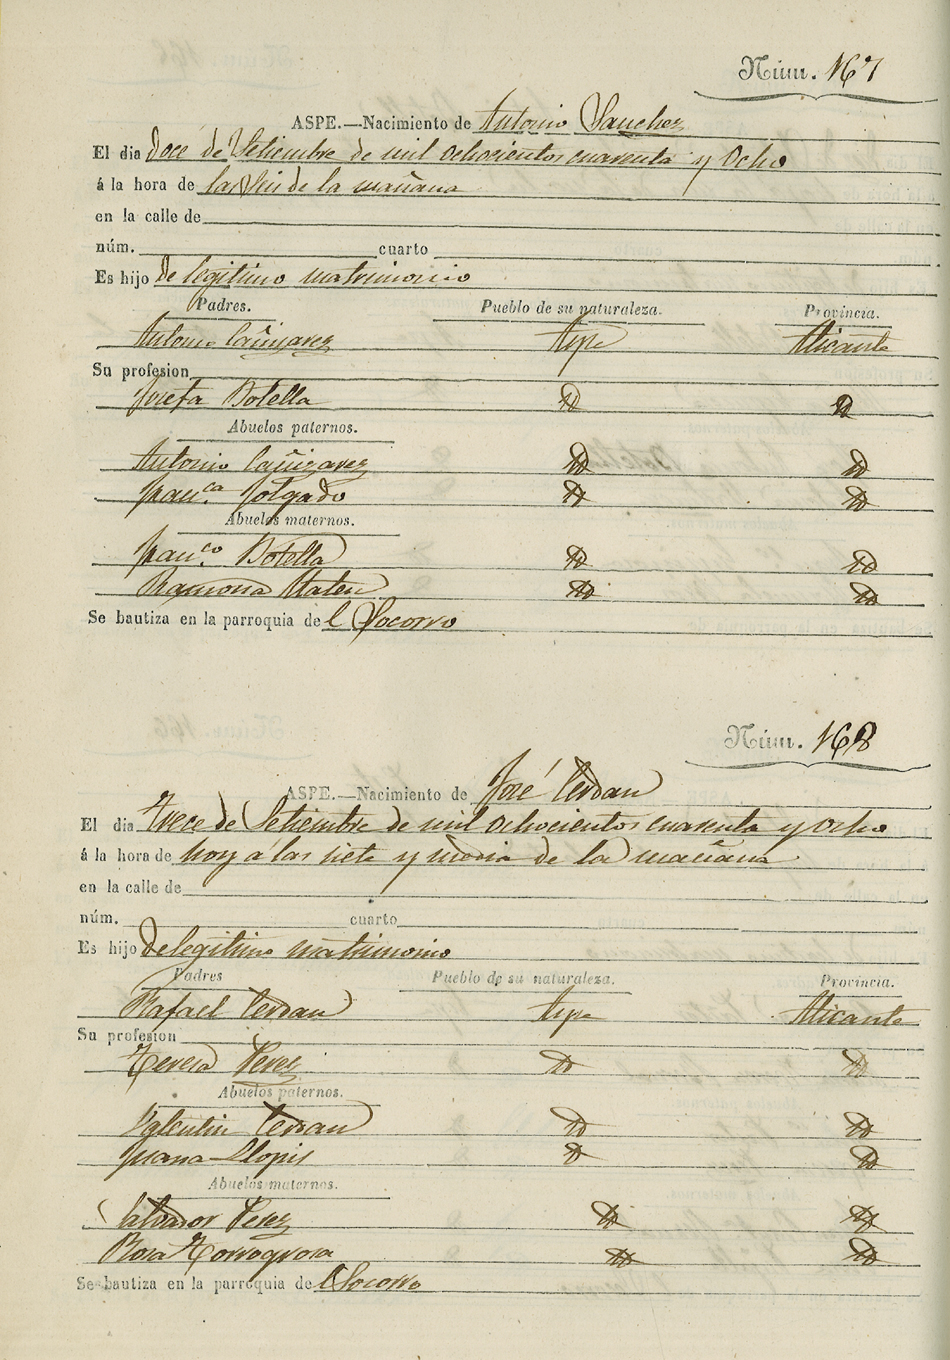 Núm. 167
ASPE.—Nacimiento de Antonio Sanchez
El dia doce de Setiembre de mil ochocientos cuarenta y ocho
á la hora de las seis de la mañana
en la calle de
núm. cuarto
Es hijo de legitimo matrimonio
Padres. Pueblo de su naturaleza. Provincia.
Antonio Cañizarez Aspe Alicante
Su profesion
Josefa Botella Id Id
Abuelos paternos.
Antonio Cañizarez Id Id
Fran.ca Folgado Id Id
Abuelos maternos.
Fran.co Botella Id Id
Ramona Mateu Id Id
Se bautiza en la parroquia de l Socorro
Núm. 168
ASPE.—Nacimiento de José Cerdan
El dia trece de Setiembre de mil ochocientos cuarenta y ocho
á la hora de hoy á las siete y media de la mañana
en la calle de
núm. cuarto
Es hijo de legitimo matrimonio
Padres Pueblo de su naturaleza. Provincia.
Rafael Cerdan Aspe Alicante
Su profesion
Teresa Perez Id Id
Abuelos paternos.
Valentin Cerdan Id Id
Juana Llopis Id Id
Abuelos maternos.
Salvador Perez Id Id
Rosa Torregrosa Id Id
Se bautiza en la parroquia de l Socorro